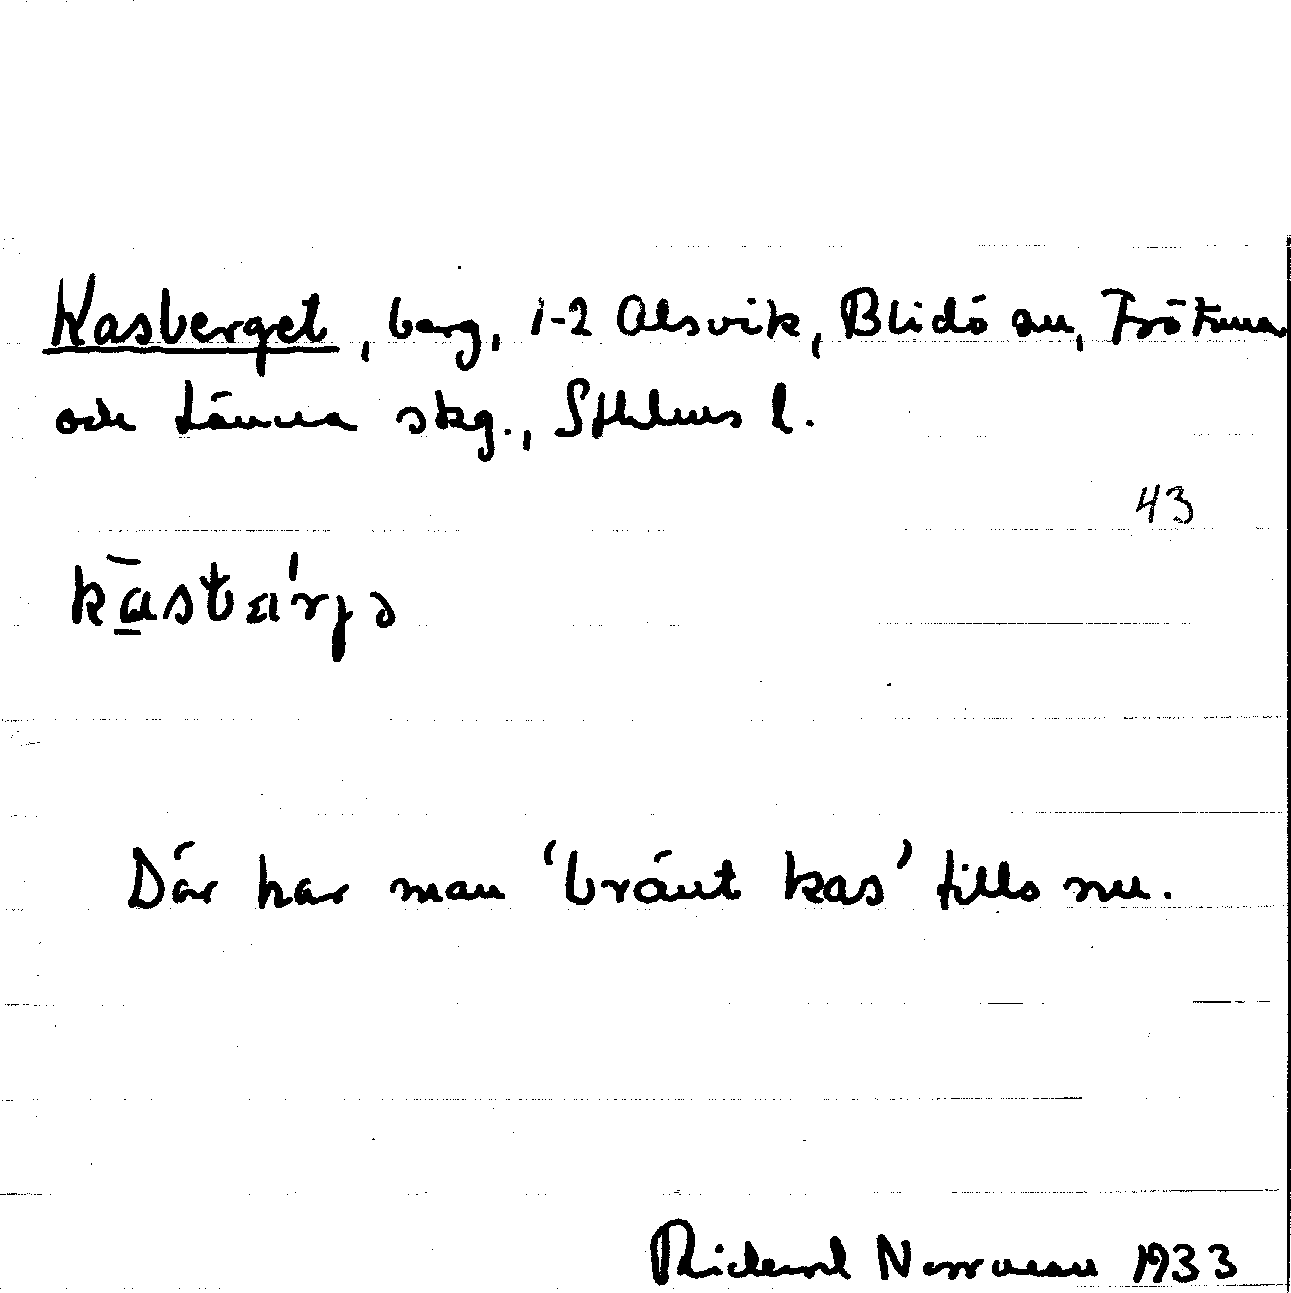 Kasberget, berg, 1-2 Alsvik, Blidö sn, Frötuna
och Länna skg., Sthlms l.
43
Där har man 'bränt kas' tills nu.
Rickard Norrman 1933